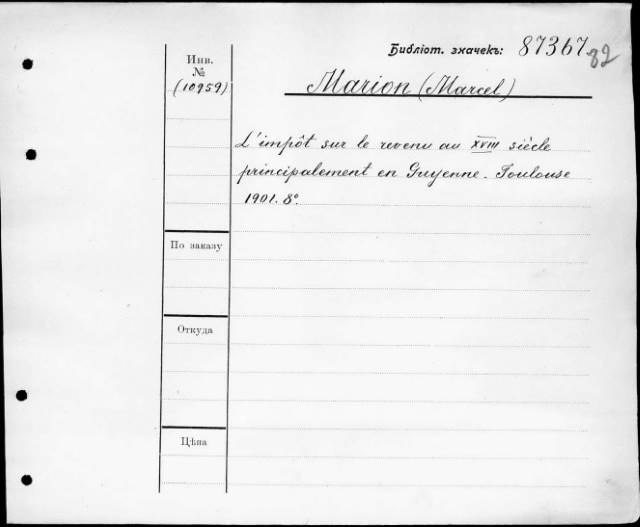 Библіот. значекъ: 87367
82
Инв.
№
(10959)
Marion (Marcel)
L'impôt sur le revenu au XVIII siècle
principalement en Guyenne. Toulouse
1901. 8º.
По заказу
Откуда
Цѣна